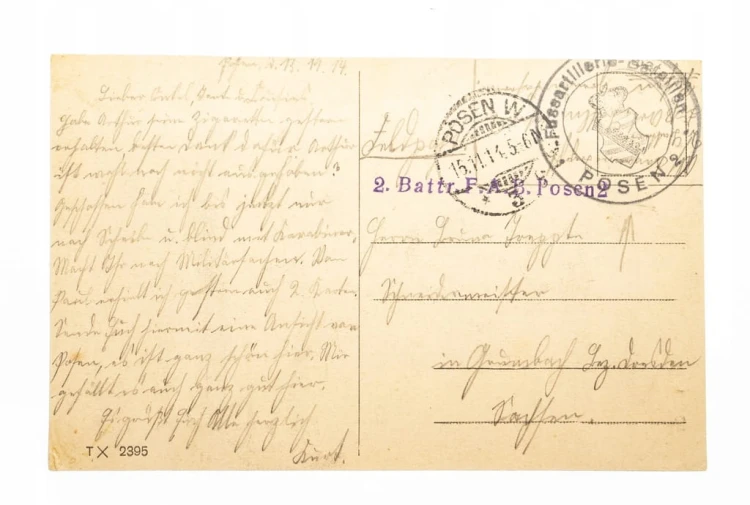 Posen, d. 13. 11. 14.
Lieber Onkel, Tante u. Cousins!
Habe Arthur seine Zigaretten gestern
erhalten, besten Dank dafür. Arthur
ist wohl noch nicht ausgehoben?
Geschossen haben wir bis jetzt nur
nach Scheibe u. blind mit Karabiner.
Macht Ihr noch Militärsachen. Von
Paul erhielt ich gestern auch 2 Karten.
Sende Euch hiermit eine Ansicht von
Posen, es ist ganz schön hier. Mir
gefällt es auch ganz gut hier.
Es grüßt Euch Alle herzlich
Kurt.
TX 2395
Feldpost
POSEN W.
15.11.14.5-6N.
* 3
Fussartillerie-Bataillon
POSEN 2
2. Battr. F. A. B. Posen 2
Herrn Bruno
Schneidermeister
in Grumbach Bez. Dresden
Sachsen.